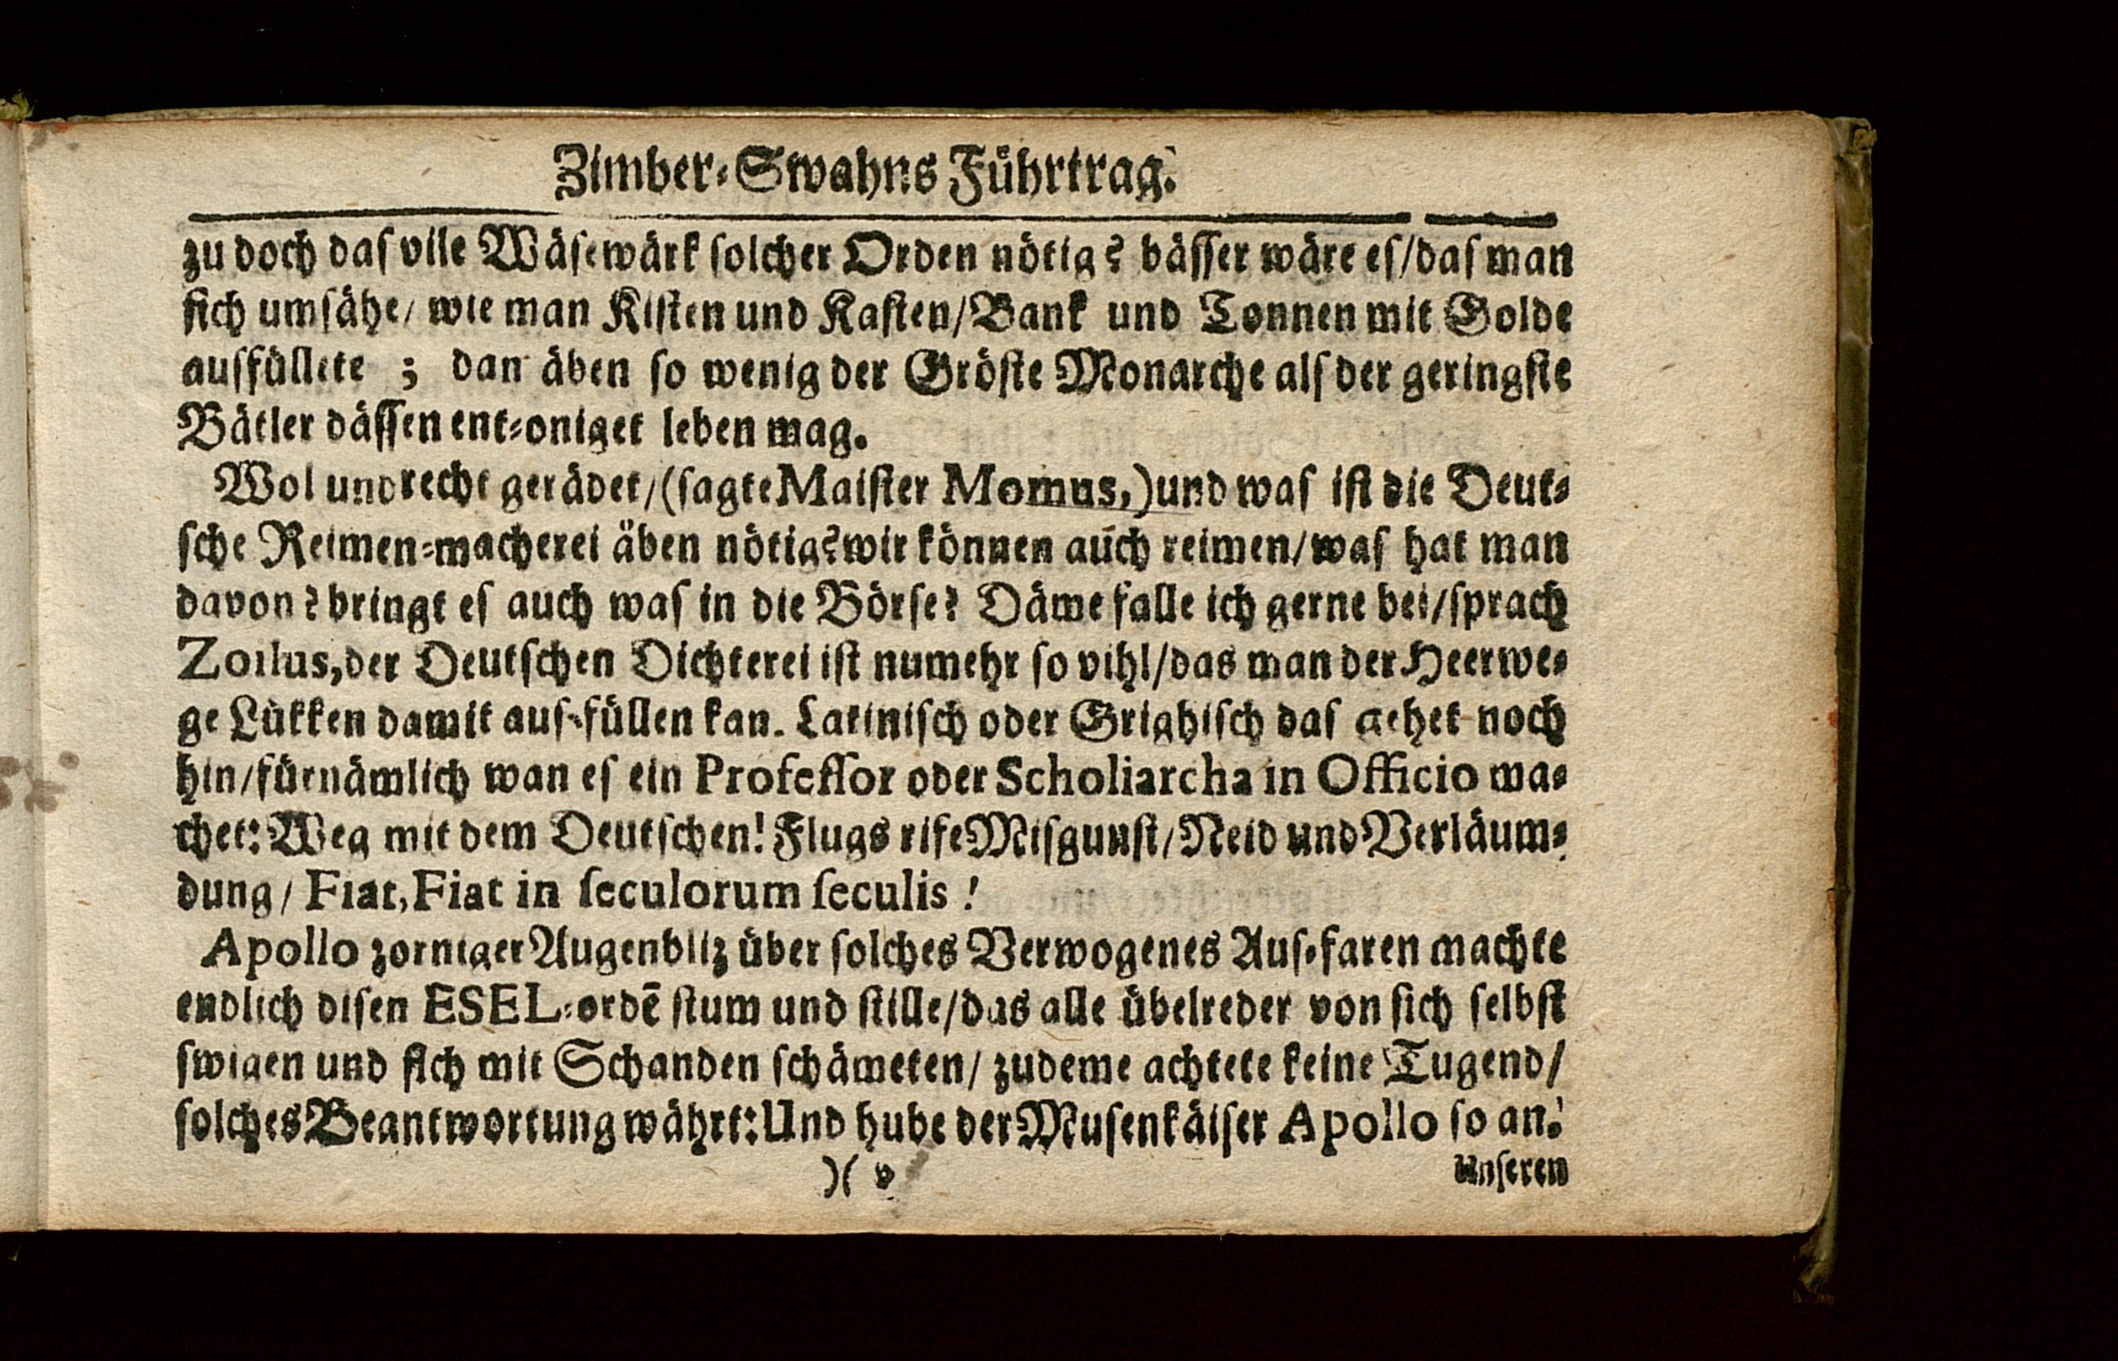 Zimber-Swahns Führtrag.
zu doch das vile Wäsewärk solcher Orden nötig? bässer wäre es/das man
sich umsähe/ wie man Kisten und Kasten/Bank und Tonnen mit Golde
ausfüllete ; dan äben so wenig der Gröste Monarche als der geringste
Bätler dässen ent-oniget leben mag.
Wol und recht gerädet/(sagte Maister Momus,)und was ist die Deut-
sche Reimen-macherei äben nötig?wir können auch reimen/was hat man
davon? bringt es auch was in die Börse? Däme falle ich gerne bei/sprach
Zoilus,der Deutschen Dichterei ist numehr so vihl/das man der Heerwe-
ge Lükken damit aus-füllen kan. Latinisch oder Grighisch das gehet noch
hin/fürnämlich wan es ein Professor oder Scholiarcha in Officio ma-
chet: Weg mit dem Deutschen! Flugs rife Misgunst/Neid und Verläum-
dung/ Fiat, Fiat in seculorum seculis!
Apollo zorniger Augenbliz über solches Verwogenes Aus-faren machte
endlich disen ESEL-ordē stum und stille/das alle übelreder von sich selbst
swigen und sich mit Schanden schämeten/ zudeme achtete keine Tugend/
solches Beantwortung währt: Und hube der Musenkäiser Apollo so an:
)( v
Unseren